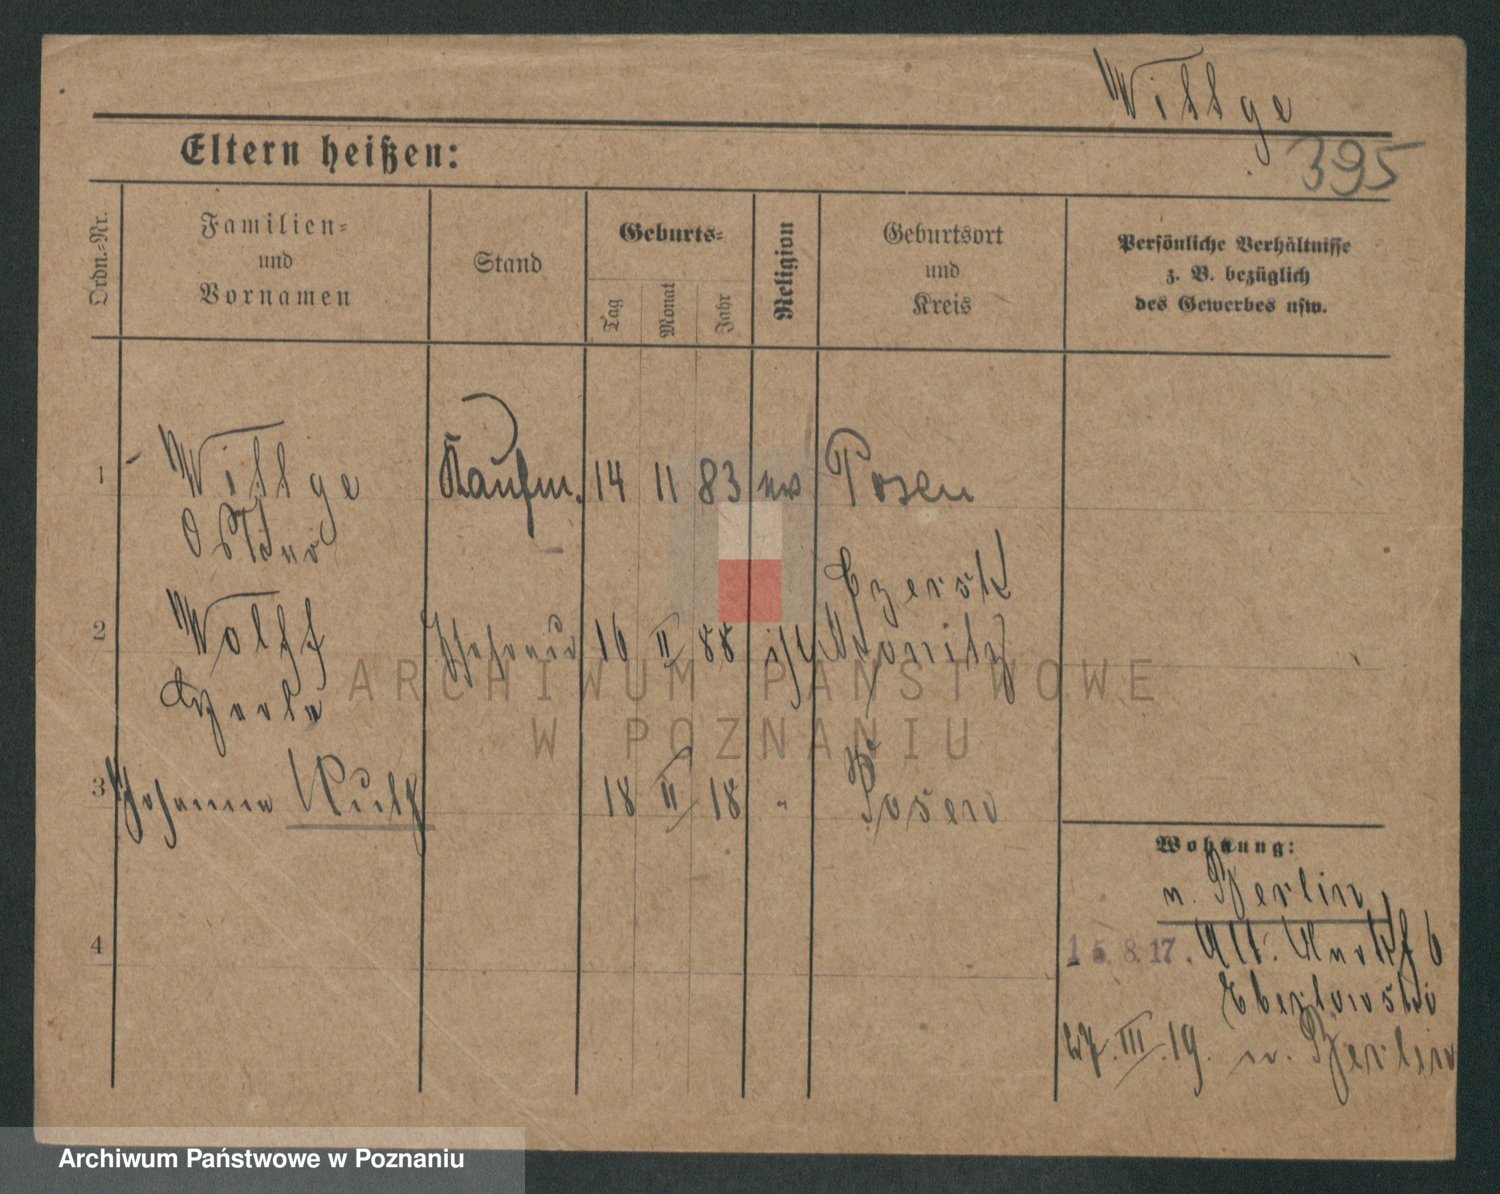 Willge
395
Eltern heißen:
Ordn.-Nr.
Familien-
und
Vornamen
Stand
Geburts-
Tag
Monat
Jahr
Religion
Geburtsort
und
Kreis
Persönliche Verhältnisse
z. B. bezüglich
des Gewerbes usw.
1 Kaufm. 14 11 83 Posen
Czersk
2 Wolff Ehefrau 16 II 88 Konitz
3 Johanna Ruth 18 II 18 " Posen
Wohnung:
n. Berlin
15.8.17. Alt. Markt 6
4
27.III.19. n. Berlin
ARCHIWUM PAŃSTWOWE
W POZNANIU
Archiwum Państwowe w Poznaniu